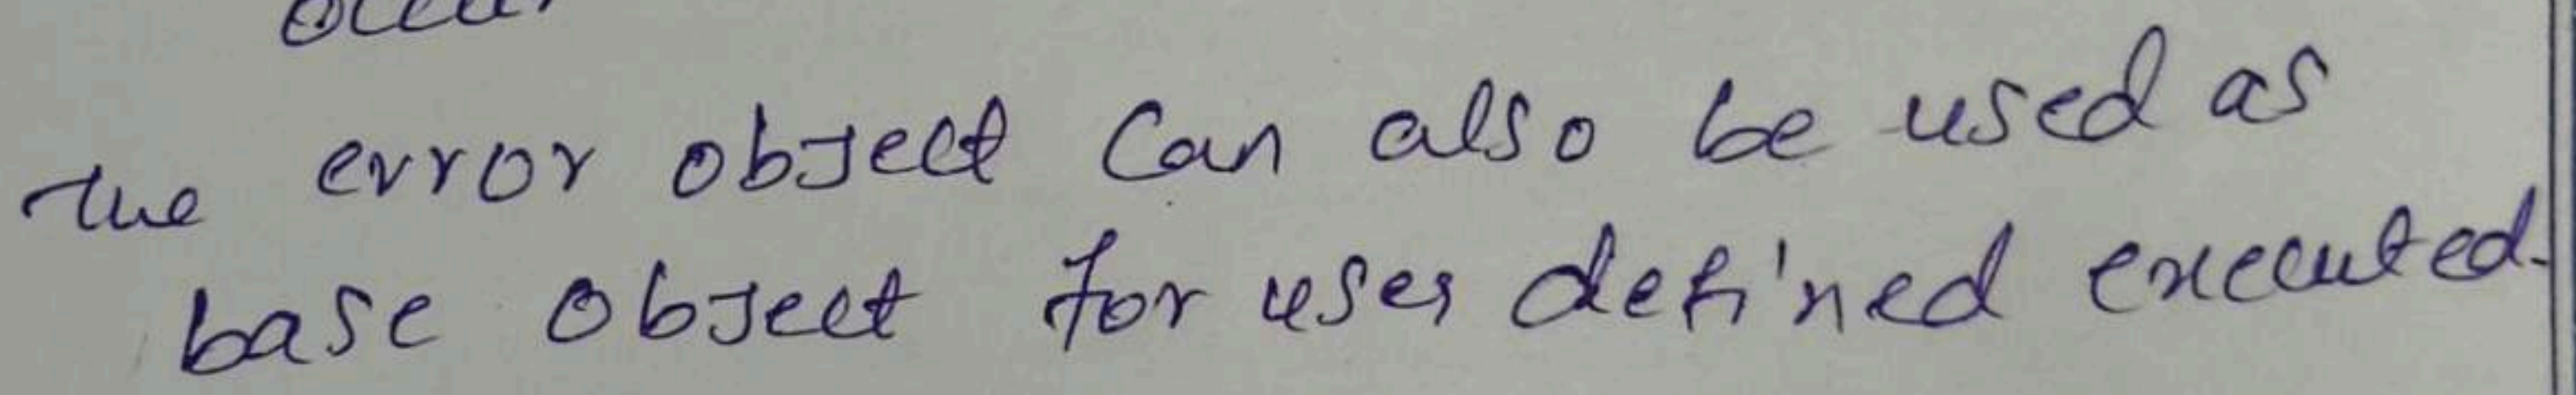 occur
the error object can also be used as
base object for user defined executed.